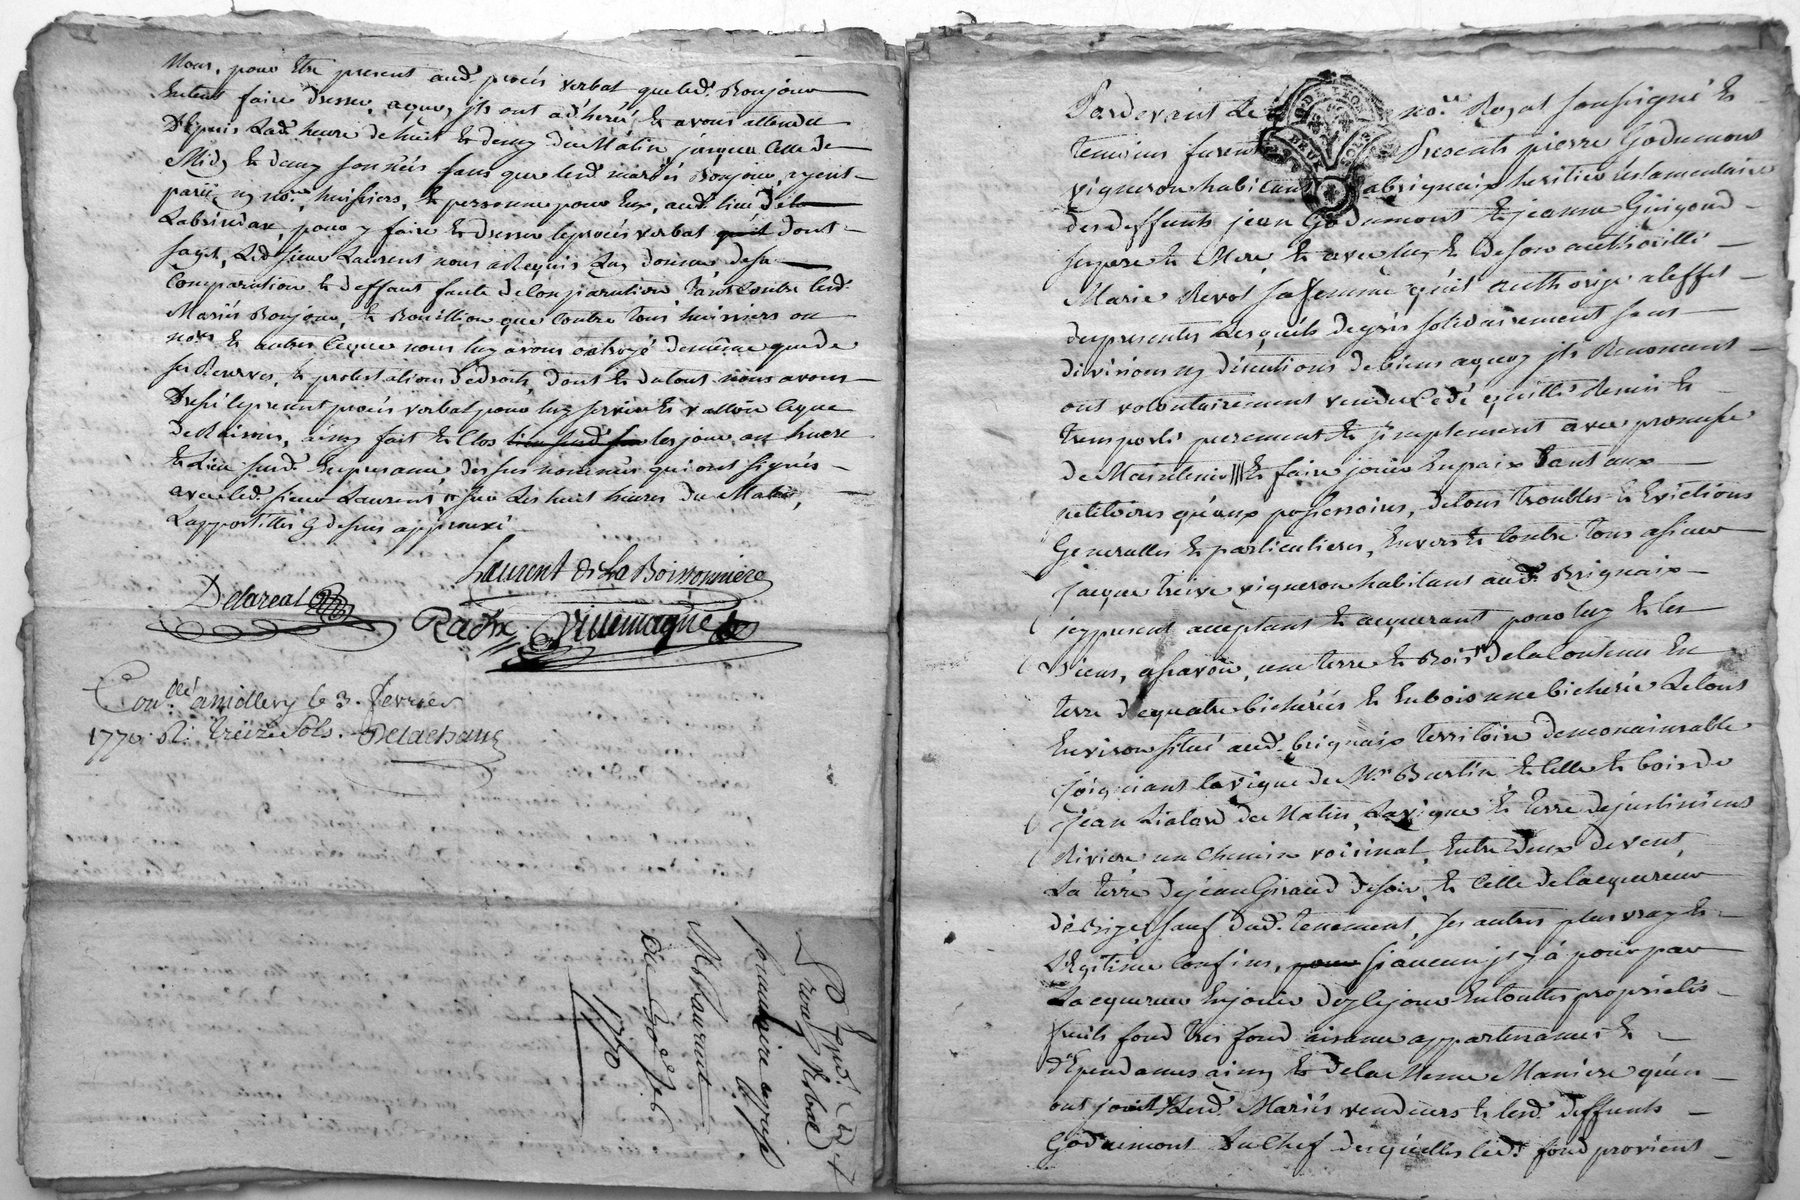 Nous, pour Etre present aud. procés verbal que led. Bonjour
Entend faire dresser, aquoy jls ont adheré, Et avons attendu
Depuis Lad. heure de huit Et demy du Matin jusqua Celle de
Midy Et demy sonnés sans que lesd. mariés Bonjour, ayent
parû, ny no.re huissiers, Et personne pour Eux, aud. lieu dela
pour y faire Et dresser leprocés verbal dont
sagit, Led. sieur Laurent nous a Requis Luy donner desa
Comparution Et deffaut faute de Comparution Tant Contre lesd.
Mariés Bonjour, Et Bouillion que Contre Tous huissiers ou
no.res Et autres Ceque nous luy avons octroyé demême que de
ses Reserves, Et protestations dedroits, Dont Et dutout nous avons
Dressé lepresent procés verbal pour luy servir Et valloir Ceque
De Raison, ainsy fait Et Clos les jour, an heure
Et Lieu susd. En presence des sus nommés qui ont signés
avec led. sieur Laurent sur Les huit heures du Matin,
Lapportillés cy dessus approuvé
Laurent De La Boissonniere
Delareal
Radix Villemagne
Con.llé amillery le 3. fevrier
1770 R. treize sols. Delachana
Du 27 Exp.é
Procez Verbal
M.e Laurent
Du
1770
Pardevant Le no.re Royal soussigné Et
GDE LYON
DEUX SOLS
temoins furent Presents pierre Godumont
vigneron habitant abrignaix heritier testamentaire
des deffunts jean Godumont Et jeanne Guigoud
ses pere Et Mere Et avec luy Et de son authorité
Marie Revol sa femme quil authorise aleffet
des presentes Lesquels degrés solidairement sans
divisions ny discutions debiens aquoy jls Renoncent
ont volontairement vendu Cedé quitté Remis Et
transporté purement Et simplement avec promesse
de Maintenir Et faire jouir En paix Tant aux
petitoires qu'aux possessoires, detous troubles Et Evictions
Generalles Et particulieres, Envers Et Contre Tous asieur
jacque treive vigneron habitant aud. Brignaix
jcy present acceptant Et acquerant pour luy Et les
siens, asçavoir, une terre Et Bois dela Contenue En
terre dequatre bicherées Et En bois une bicherée Le tout
Environ situé aud. brignaix Territoire de
joignant la vigne de Mr Burtin Et Celle Et bois de
jean Lialard de Matin, La vigne Et terre de
Riviere un Chemin voisinal, Entre deux de vent,
La terre de jean Giraud de soir, Et Celle de Lacquereur
de Bize, sauf dud. tenement, ses autres plus vray Et
Legitime Confins, pour si aucun jl y à pour par
Lacquereur En jouir dez lejour En touttes proprietés
fruits fond tres fond aisances appartenances Et
dependances ainsy Et de la Meme Maniere qu'en
ont jouit lesd. Mariés vendeurs Et lesd. deffunts
Godumont Du Chef desquelles led. fond provient